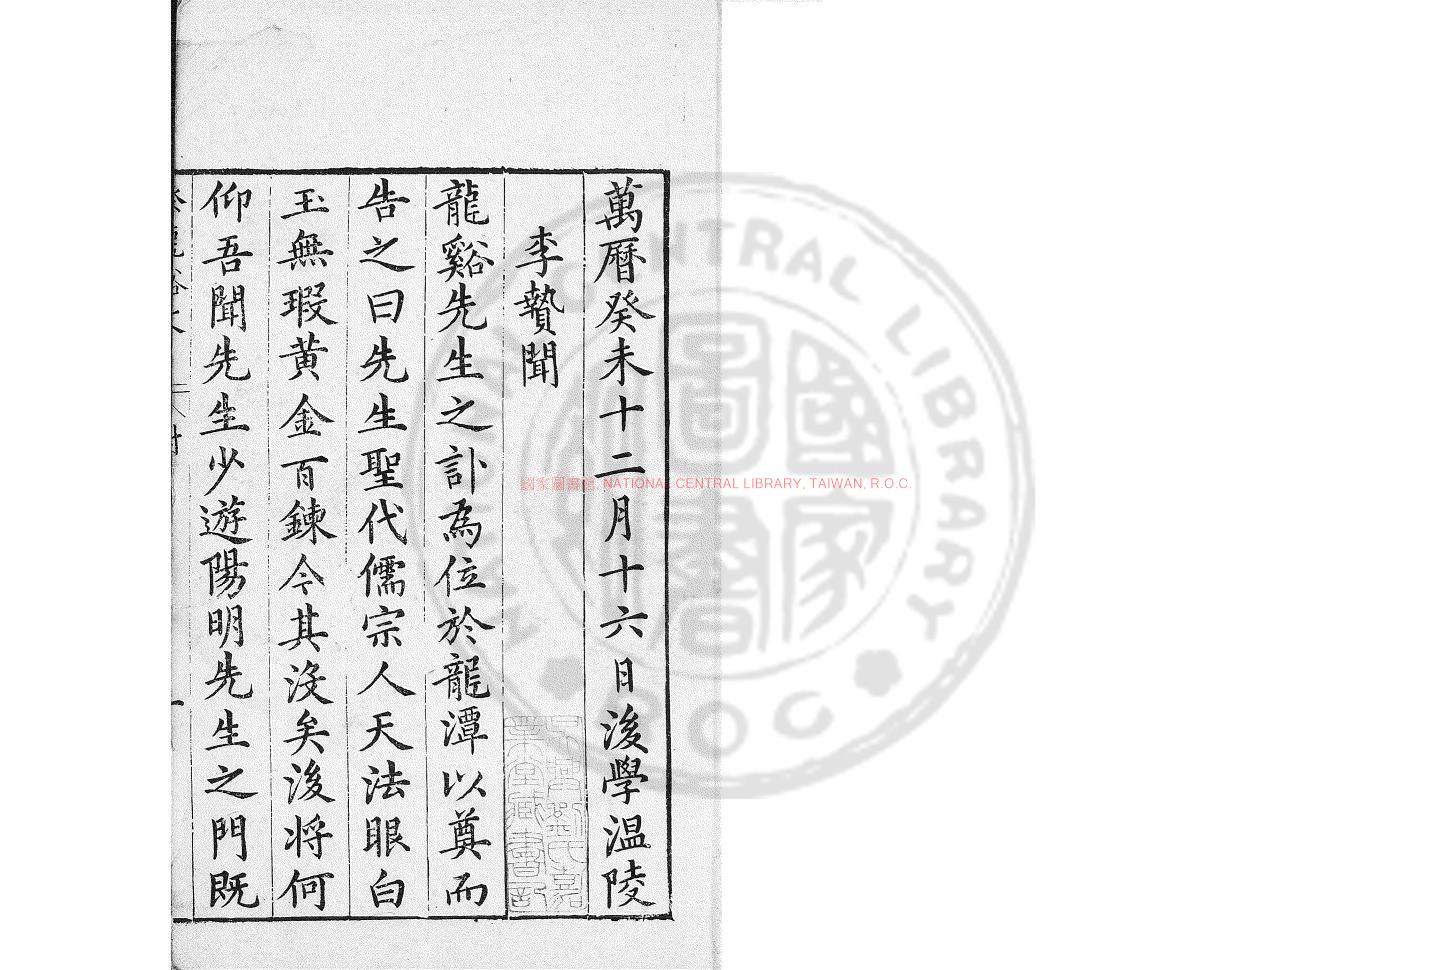 萬曆癸未十二月十六日後學溫陵
李贄聞
龍谿先生之訃為位於龍潭以奠而
告之曰先生聖代儒宗人天法眼白
玉無瑕黃金百鍊今其沒矣後將何
仰吾聞先生少遊陽明先生之門既
國家圖書館, NATIONAL CENTRAL LIBRARY, TAIWAN, R.O.C.
NATIONAL CENTRAL LIBRARY
ROC
國家圖書館